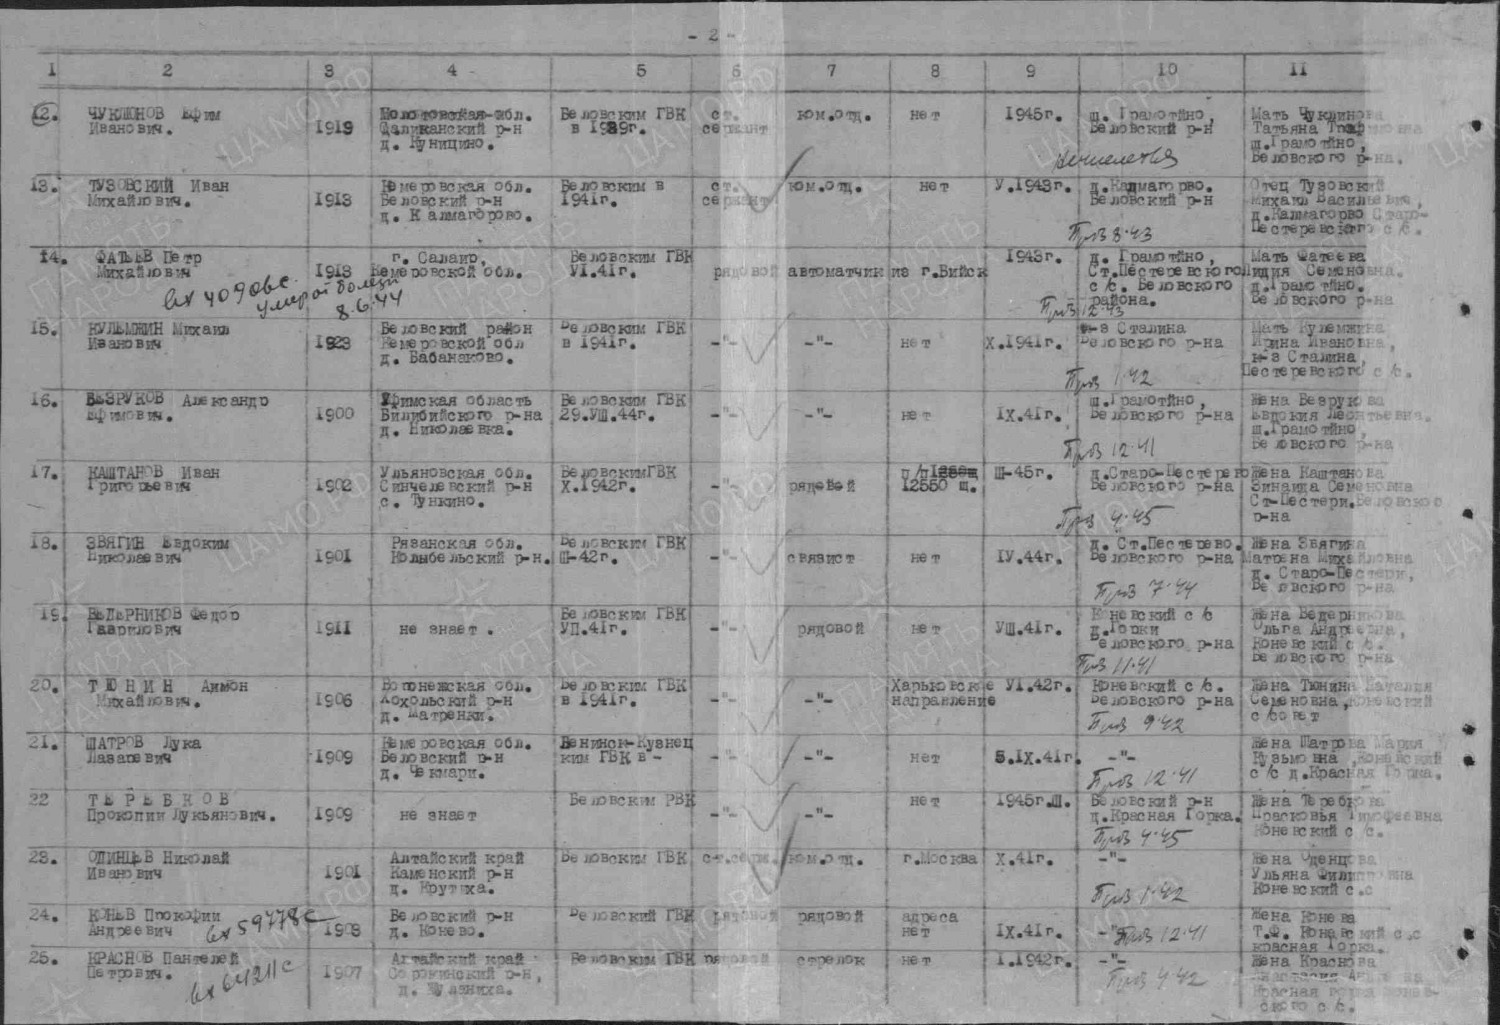 - 2 -
1 2 3 4 5 6 7 8 9 10 11
12. ЧУКЛЮНОВ Ефим Иванович. 1919 обл. р-н д. Куницино. Беловским ГВК в 1939г. ст. сержант ком.отд. нет 1945г. ш. Грамотйно, Беловский р-н Мать Чуклинова Татьяна ш.Грамотйно, Беловского р-на.
13. ТУЗОВСКИЙ Иван Михайлович. 1913 Кемеровская обл. Беловский р-н д. Калмагорово. Беловским в 1941г. ст. сержант ком.отд. нет У.1943г. д.Калмагорво. Беловский р-н Отец Тузовский Михаил Васильевич, д.Калмагорво Старо-Пестеревского с/с.
Пров 8.43
14. ФАТЕЕВ Петр Михайлович 1913 г. Салаир, Кемеровской обл. Беловским ГВК У1.41г. рядовой автоматчик из г.Бийск 1943г. д. Грамотйно, Ст.Пестеревского с/с. Беловского района. Мать Фатеева Лидия Семеновна. д.Грамотйно. Беловского р-на
вх 4090вс. умер от болезн 8.6.44
Пров 12.43
15. КУЛЕМЖИН Михаил Иванович 1923 Беловский район Кемеровской обл д. Бабанаково. Беловским ГВК в 1941г. -"- -"- нет Х.1941г. к-з Сталина Беловского р-на Мать Кулемжина Ирина Ивановна, к-з Сталина, Пестеревского с/с.
Пров 1.42
16. БЕЗРУКОВ Александр Ефимович. 1900 Уфимская область Билибийского р-на д. Николаевка. Беловским ГВК 29.УШ.44г. -"- -"- нет IХ.41г. ш.Грамотйно, Беловского р-на Жена Безрукова Евдокия Леонтьевна. ш.Грамотйно, Беловского р-на
Пров 12.41
17. КАШТАНОВ Иван Григорьевич 1902 Ульяновская обл. Синчелевский р-н с. Тункино. БеловскимГВК Х.1942г. -"- рядовой п/п 12550 щ. Ш-45г. д.Старо-Пестерево Беловского р-на Жена Каштанова Зинаида Семеновна Ст-Пестери.Беловского р-на
Пров 4.45
18. ЗВЯГИН Евдоким Николаевич 1901 Рязанская обл. Колыбельский р-н. Беловским ГВК Ш-42г. -"- связист нет IУ.44г. д. Ст.Пестерево. Беловского р-на Жена Звягина Матрена Михайловна д. Старо-Пестери, Беловского р-на
Пров 7.44
19. ВЕДЕРНИКОВ Федор Гаврилович 1911 не знает . Беловским ГВК УП.41г. -"- рядовой нет УШ.41г. Коневский с/с д.Горки Беловского р-на Жена Ведерникова Ольга Андреевна, Коневский с/с. Беловского р-на
Пров 11.41
20. ТЮНИН Михайлович. 1906 Воронежская обл. Хохольский р-н д. Матренки. Беловским ГВК в 1941г. -"- -"- Харьковское направление У1.42г. Коневский с/с. Беловского р-на Жена Тюнина Наталия Семеновна,Коневский с/совет
Пров 9.42
21. ШАТРОВ Лука Лазаревич 1909 Кемеровская обл. Беловский р-н д. Чекмари. Ленинск-Кузнецким ГВК в - -"- -"- нет 5.IХ.41г. -"- Жена Шатрова Мария Кузьмовна ,Коневский с/с д.Красная Горка.
Пров 12.41
22 ТЕРЕБКОВ Прокопии Лукьянович. 1909 не знает Беловским РВК -"- -"- нет 1945г.Ш. Беловский р-н д.Красная Горка. Жена Теребкова Прасковья Тимофеевна Коневский с/с.
Пров 4.45
23. ОДИНЦЕВ Николай Иванович 1901 Алтайский край Каменский р-н д. Крутиха. Беловским ГВК ст.серж. ком.отд. г.Москва Х.41г. -"- Жена Оденцова Ульяна Филипповна Коневский с.с
Пров 1.42
24. КОНЕВ Прокофии Андреевич 1903 Беловский р-н д. Конево. Беловский ГВК рядовой рядовой адреса нет IХ.41г. -"- Жена Конева Т.Ф. Коневский с.с красная Горка.
вх 59778с
Пров 12.41
25. КРАСНОВ Пантелей Петрович. 1907 Алтайский край Сорокинский р-н, Беловским ГВК рядовой стрелок нет 1.1942г. -"- Жена Краснова Анастасия Красная с/с.
вх 64211с
Пров 4.42